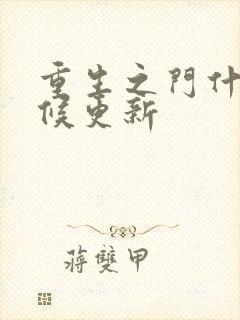 重生之門什
候更新
蔣雙甲